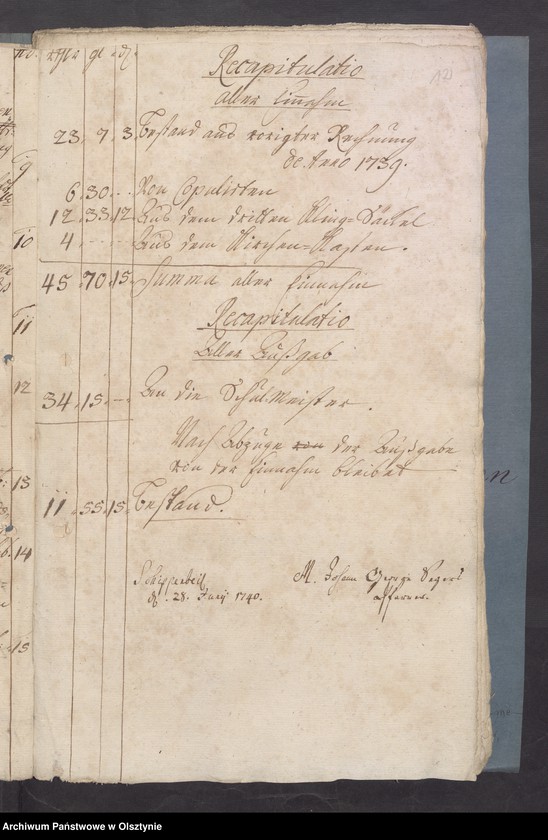 rthlr gl ₰
121
Recapitulatio
aller Einnahm
23. 7. 3. Bestand aus vorigter Rechnung
de Anno 1739.
6. 30. -. Von Copulisten
12. 33. 12. Aus dem dritten Kling=Säckel
4. - - Aus dem Kirchen=Kasten.
45. 70. 15. Summa aller Einnahm
Recapitulatio
Aller Außgab
34. 15. -. An die Schul-Meister.
Nach Abzuge von der Außgabe
von der Einnahm bleibet
11. 55. 15. Bestand.
Schippenbeil M. Johann George
d. 28. Juny 1740. Pfarrer.
9
10
11
12
13
14
15
Archiwum Państwowe w Olsztynie